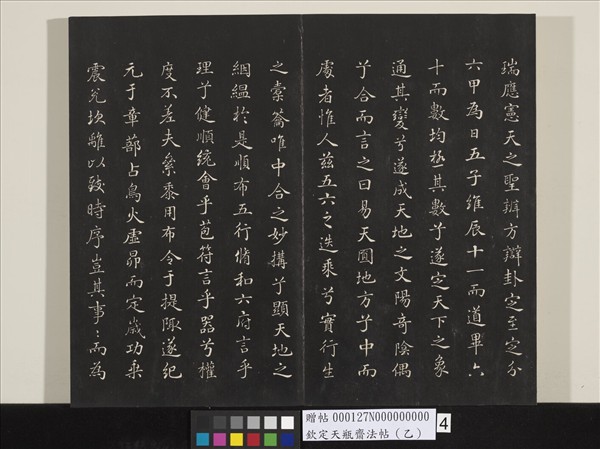 瑞應憲天之聖辨方辯卦定至定分
六甲為日五子維辰十一而道畢六
十而數均極其數兮遂定天下之象
通其變兮遂成天地之文陽奇陰偶
兮合而言之曰易天圓地方兮中而
處者惟人茲五六之迭乘兮實衍生
之橐籥唯中合之妙搆兮顯天地之
絪縕於是順布五行脩和六府言乎
理兮健順統會乎苞符言乎器兮權
度不差夫絫黍用布令于提陬遂紀
元于章蔀占鳥火虛昴而定歲功乘
震兌坎離以致時序豈其事〻而為
贈帖 000127N000000000
欽定天瓶齋法帖（乙）
4